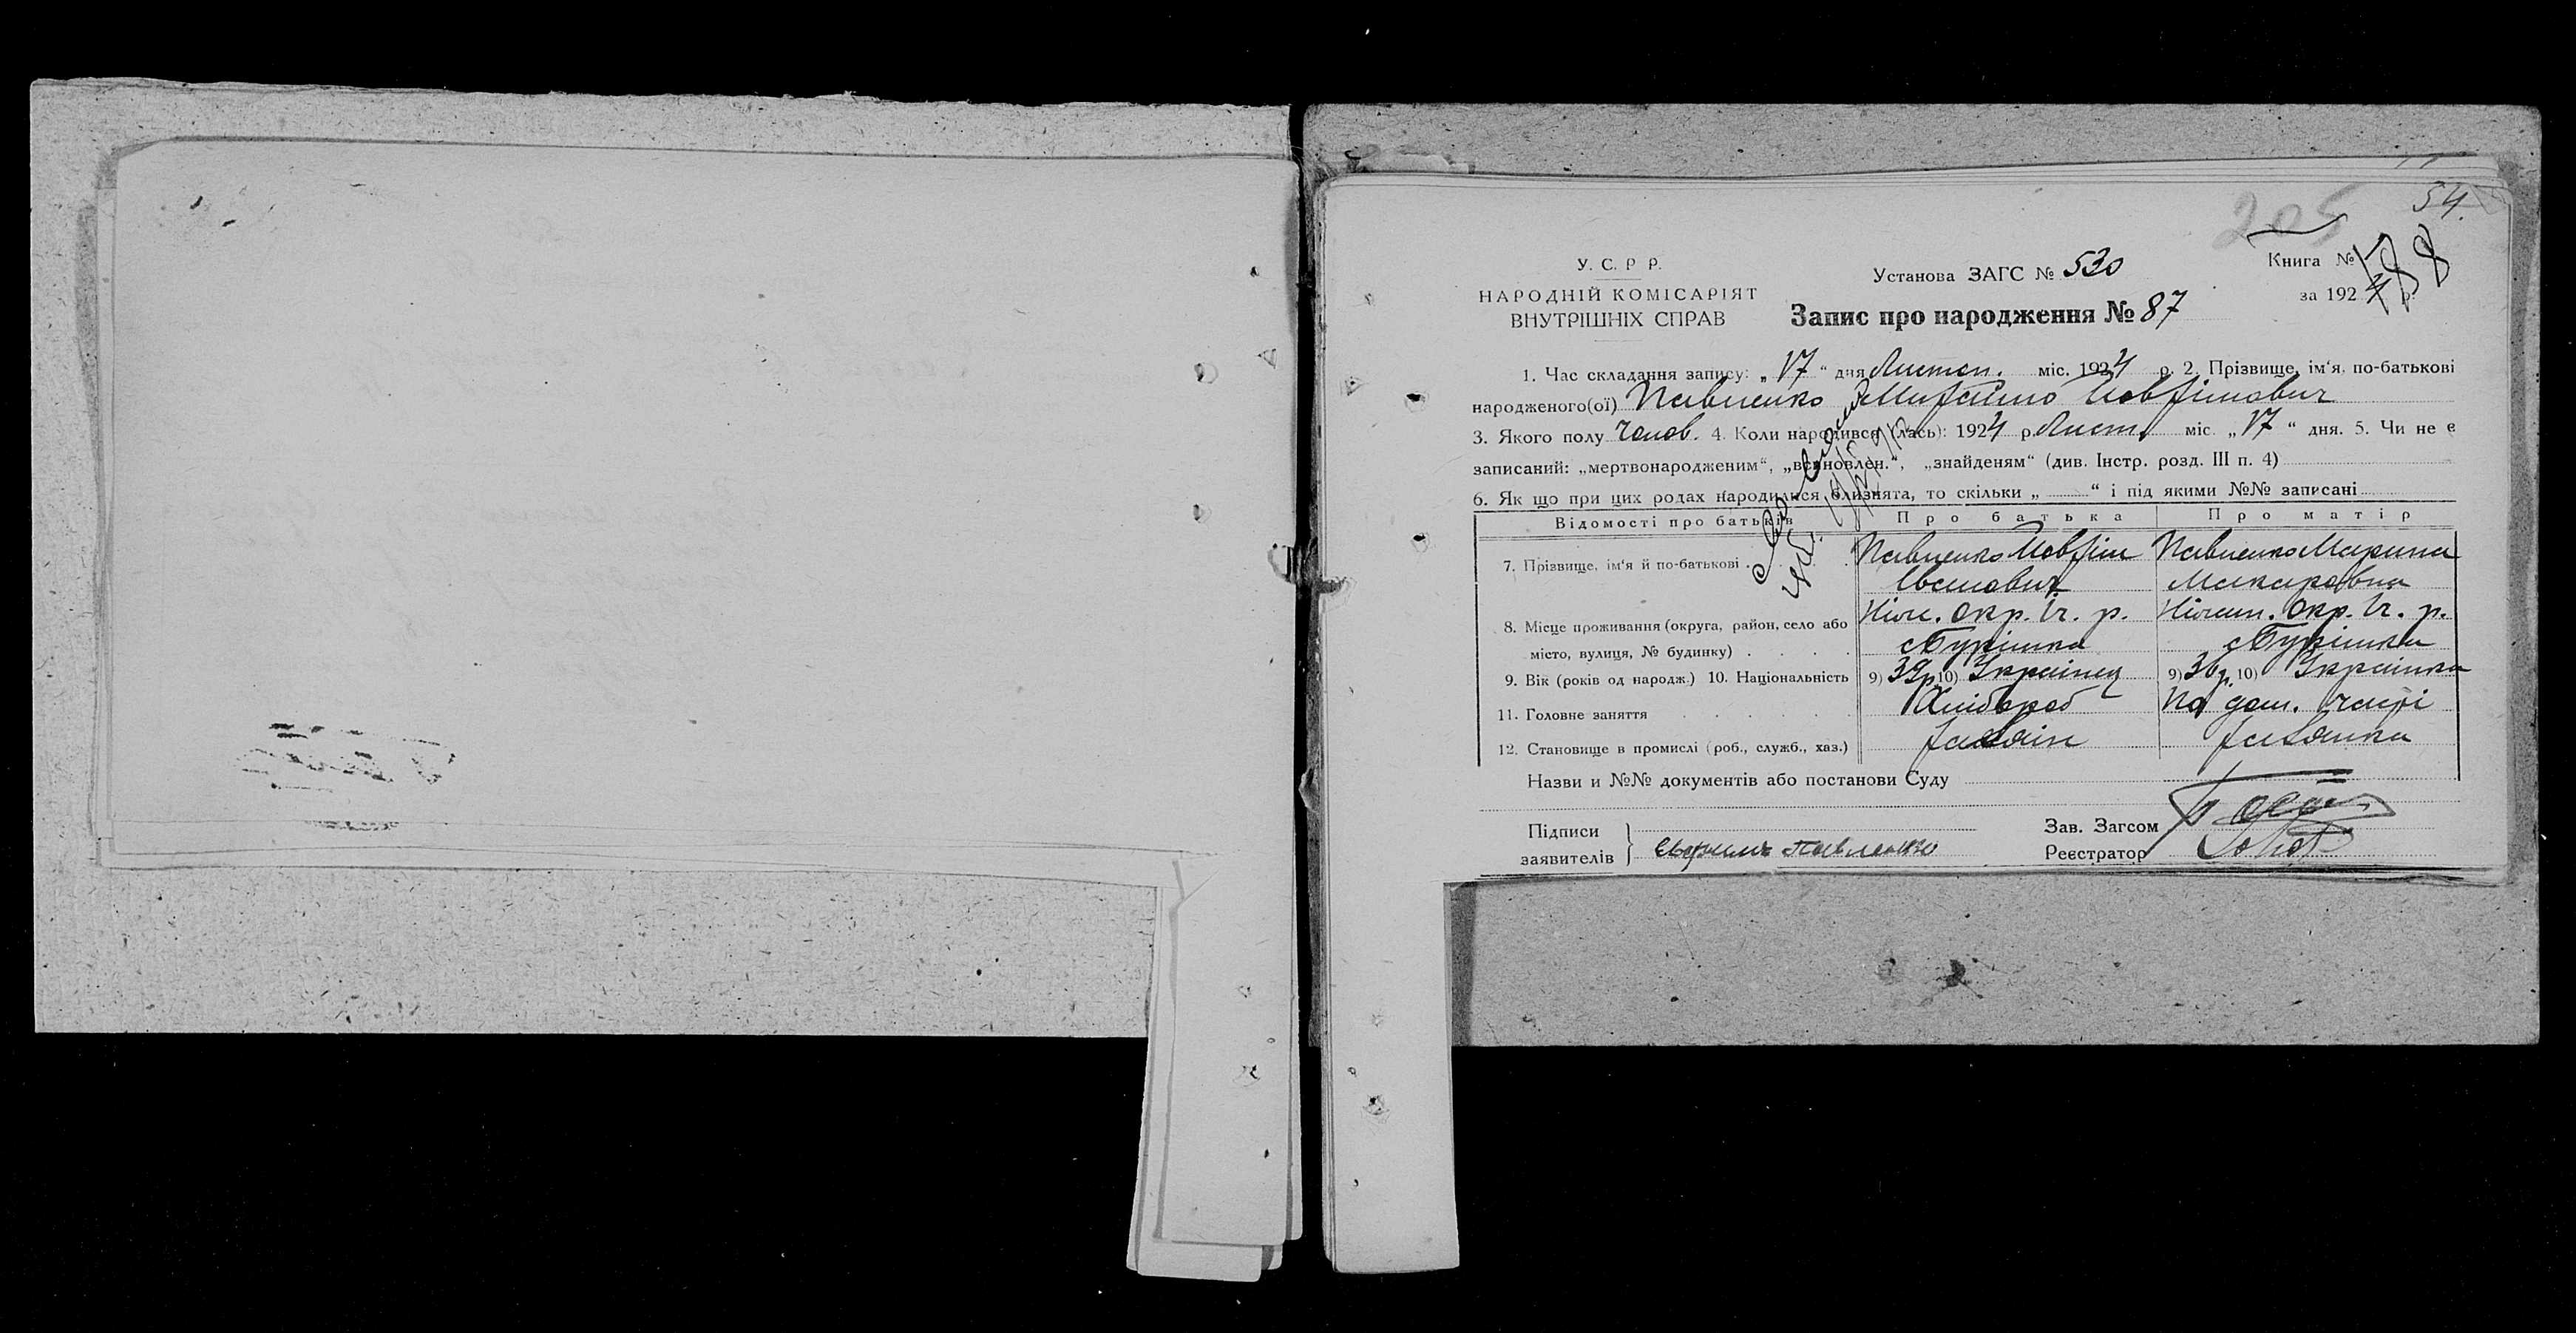 205
54.
У. С. Р Р.
НАРОДНІЙ КОМІСАРІЯТ
ВНУТРІШНІХ СПРАВ
Установа ЗАГС № 530
Книга №
за 1924 р.
88
Запис про народження № 87
1. Час складання запису: „17“ дня Листоп. міс. 1924 р. 2. Прізвище, ім‘я, по-батькові
народженого(ої) Павленко Михайло
3. Якого полу Чолов. 4. Коли народився (лась): 1924 р. Лист. міс. „17“ дня. 5. Чи не є
записаний: „мертвонародженим“, „встановлен.“, „знайденям“ (див. Інстр. розд. III п. 4)
6. Як що при цих родах народилися близнята, то скільки „ “ і під якими №№ записані
Відомості про батьків Про батька Про матір
7. Прізвище, ім‘я й по-батькові Павленко Іванович Павленко Марина Макаровна
8. Місце проживання (округа, район, село або
місто, вулиця, № будинку) Ніж. окр. Іч. р. Ніжин. Окр. Іч. р.
9. Вік (років од народж.) 10. Національність 9) 39 р. 10) Українец 9) 36 р. 10) Українка
11. Головне заняття Хлібороб На дом. хазяі
12. Становище в промислі (роб., служб., хаз.) хазяін хазяика
Назви и №№ документів або постанови Суду
Підписи
заявителів Павленко
Зав. Загсом
Реєстратор